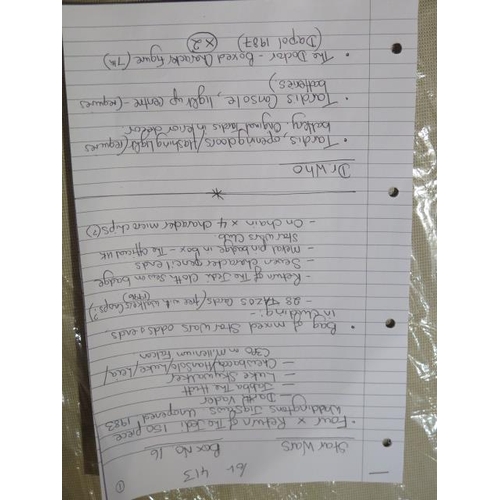 ①
61 413
Star Wars
Box No 16
• Four x Return of the Jedi 150 piece
Waddingtons Jigsaws. Unopened 1983
— Darth Vader
— Jabba The Hutt
— Luke Skywalker
— Chewbacca/HanSolo/Luke/Leia/
C3PO in Millennium Falcon
• Bag of mixed Star Wars odds & ends.
including:-
- 28 Tazos Cards (free with Walkers Crisps?)
(1996)
- Return of The Jedi Cloth Sewn badge
- Seven character pencil ends
- Metal pin badge in box - The official UK
Star Wars Club.
- On Chain x 4 character micro clips(?)
Dr Who
• Tardis, opening doors/flashing light (requires
battery. Original Tardis interior decor
• Tardis Console, light up centre - (requires
batteries).
• The Doctor - Boxed Character figure (7th)
(Dapol 1987) x2